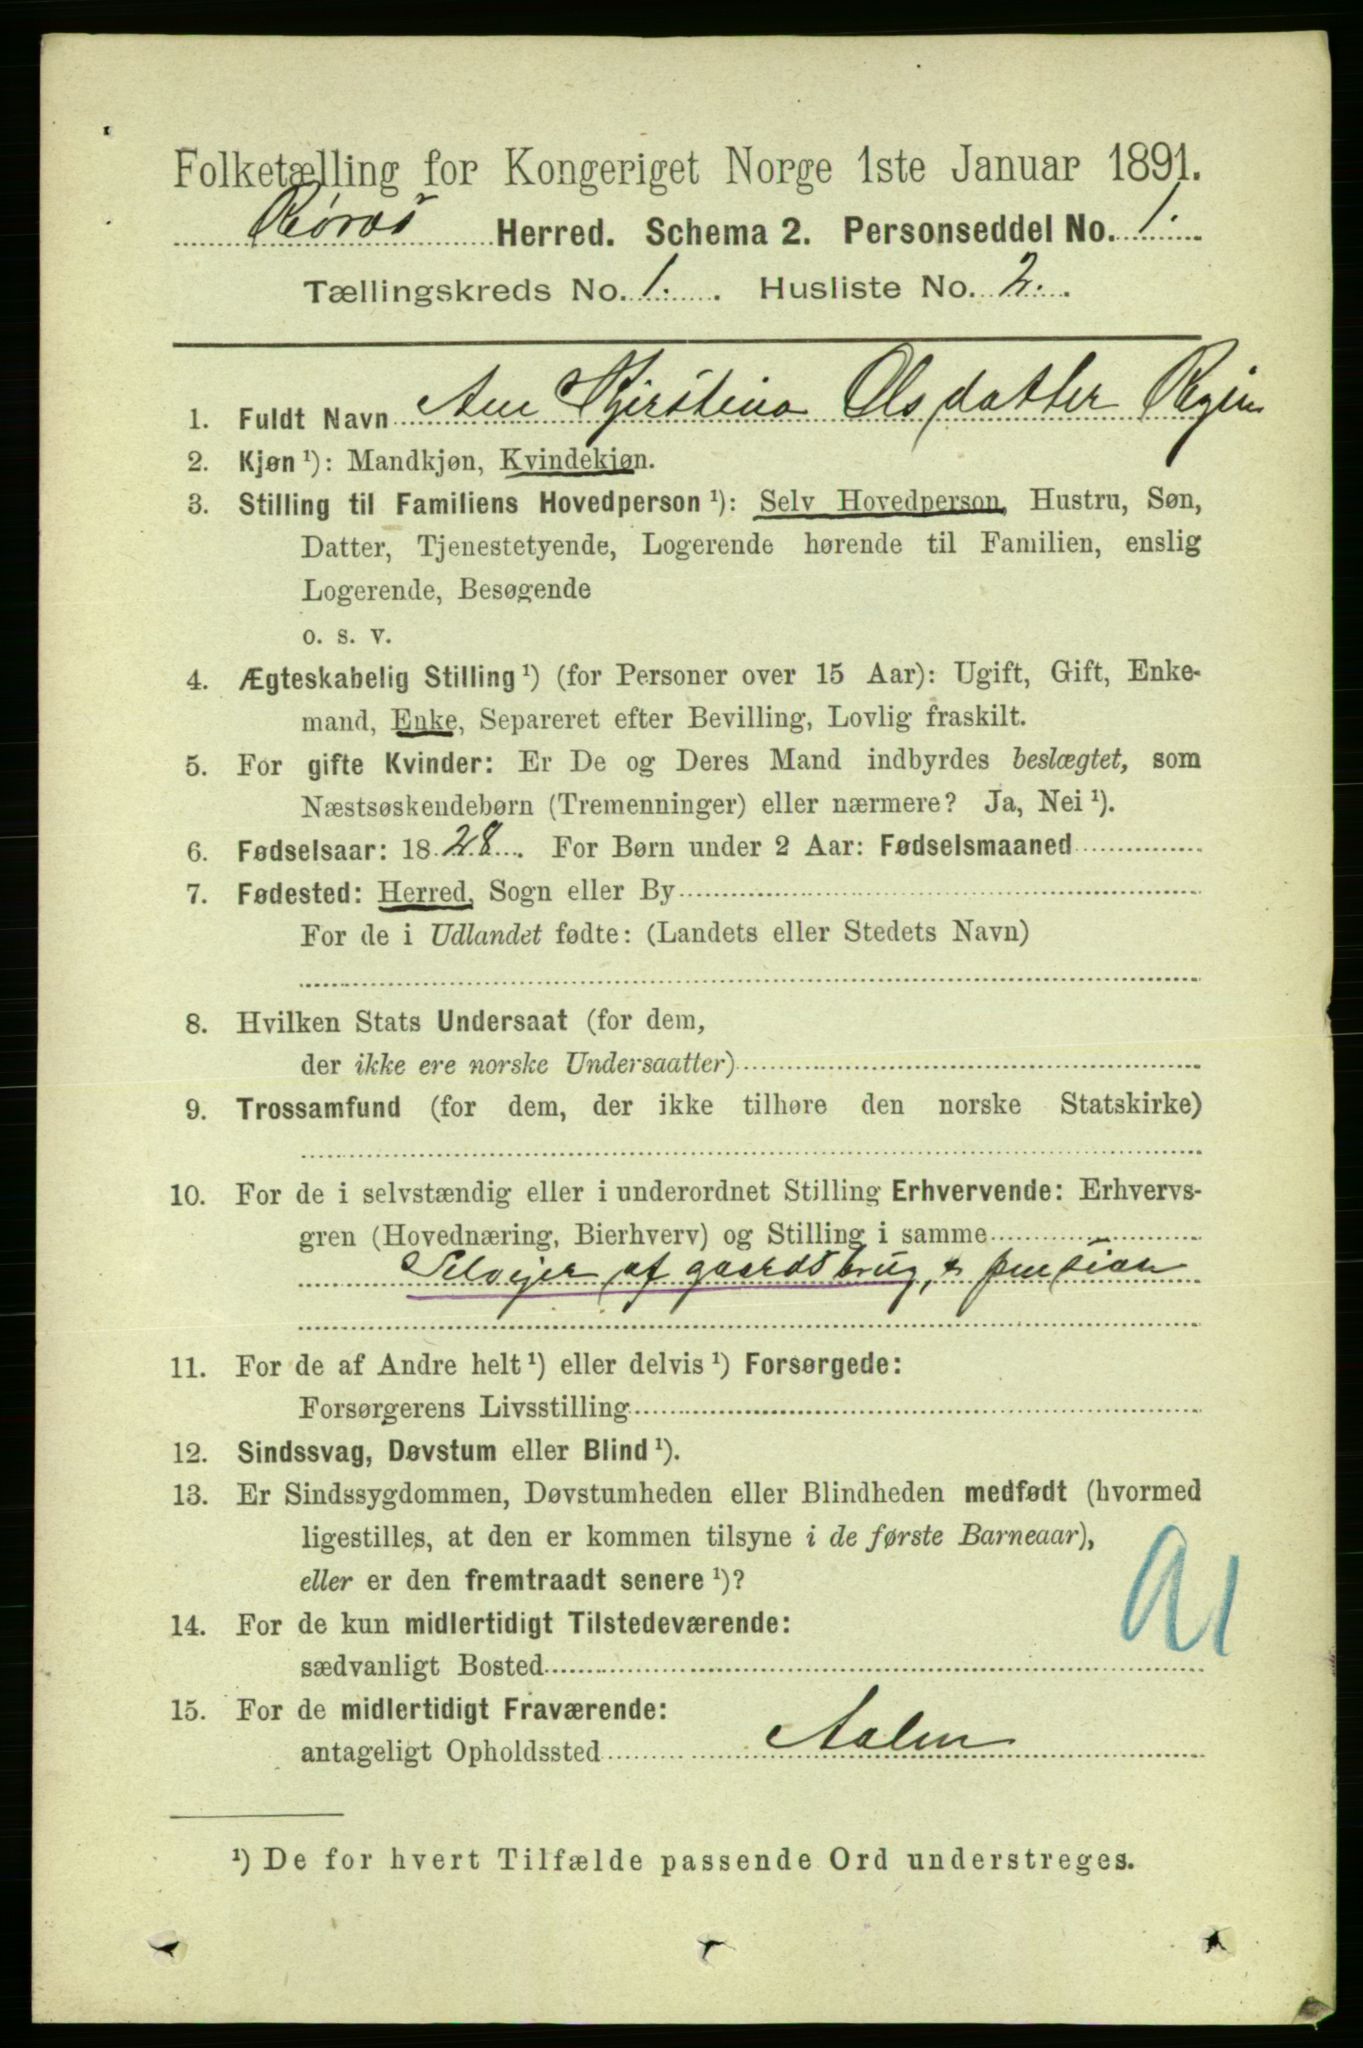 Folketælling for Kongeriget Norge 1ste Januar 1891.
Røros Herred. Schema 2. Personseddel No. 1.
Tællingskreds No. 1. Husliste No. 2.
1. Fuldt Navn Ane Kjerstina Olsdatter Ryen
2. Kjøn ¹): Mandkjøn, Kvindekjøn.
3. Stilling til Familiens Hovedperson ¹): Selv Hovedperson, Hustru, Søn,
Datter, Tjenestetyende, Logerende hørende til Familien, enslig
Logerende, Besøgende
o. s. v.
4. Ægteskabelig Stilling ¹) (for Personer over 15 Aar): Ugift, Gift, Enke-
mand, Enke, Separeret efter Bevilling, Lovlig fraskilt.
5. For gifte Kvinder: Er De og Deres Mand indbyrdes beslægtet, som
Næstsøskendebørn (Tremenninger) eller nærmere? Ja, Nei ¹).
6. Fødselsaar: 1828. For Børn under 2 Aar: Fødselsmaaned
7. Fødested: Herred, Sogn eller By
For de i Udlandet fødte: (Landets eller Stedets Navn)
8. Hvilken Stats Undersaat (for dem,
der ikke ere norske Undersaatter)
9. Trossamfund (for dem, der ikke tilhøre den norske Statskirke)
10. For de i selvstændig eller i underordnet Stilling Erhvervende: Erhvervs-
gren (Hovednæring, Bierhverv) og Stilling i samme
Selvejer af gaardsbrug, & pension
11. For de af Andre helt ¹) eller delvis ¹) Forsørgede:
Forsørgerens Livsstilling
12. Sindssvag, Døvstum eller Blind ¹).
13. Er Sindssygdommen, Døvstumheden eller Blindheden medfødt (hvormed
ligestilles, at den er kommen tilsyne i de første Barneaar),
eller er den fremtraadt senere ¹)?
14. For de kun midlertidigt Tilstedeværende:
sædvanligt Bosted
15. For de midlertidigt Fraværende:
antageligt Opholdssted Aalen
¹) De for hvert Tilfælde passende Ord understreges.